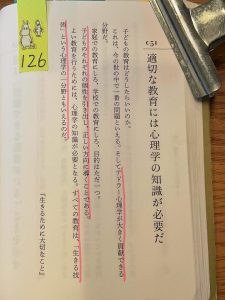 126
051
適切な教育には心理学の知識が必要だ
子どもの教育はどうしたらいいのか。
これは、今の世の中で一番の問題といえる。そしてアドラー心理学が大きく貢献できる
分野だ。
家庭での教育にしろ、学校での教育にしろ、目的はただ一つ。
子どもそれぞれの個性を引き出し、正しい方向に導くことである。
よい教育を行うためには、心理学の知識が必要となる。すべての教育は、「生きる技
術」という心理学の一分野ともいえるのだ。
『生きるために大切なこと』